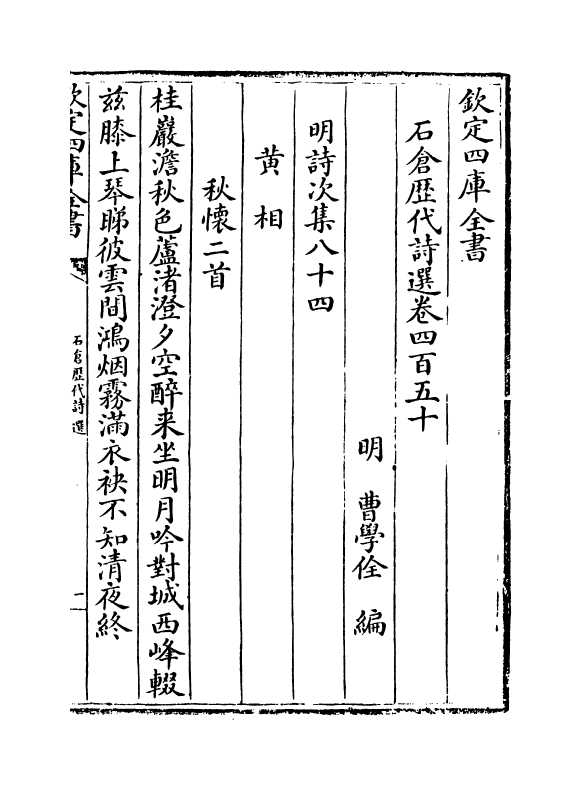 欽定四庫全書
石倉歴代詩選卷四百五十
明　曹學佺　編
明詩次集八十四
黄相
秋懐二首
桂巖澹秋色蘆渚澄夕空醉来坐明月吟對城西峰輟
兹膝上琴睇彼雲間鴻烟霧滿衣袂不知清夜終
欽定四庫全書
石倉歴代詩選
一